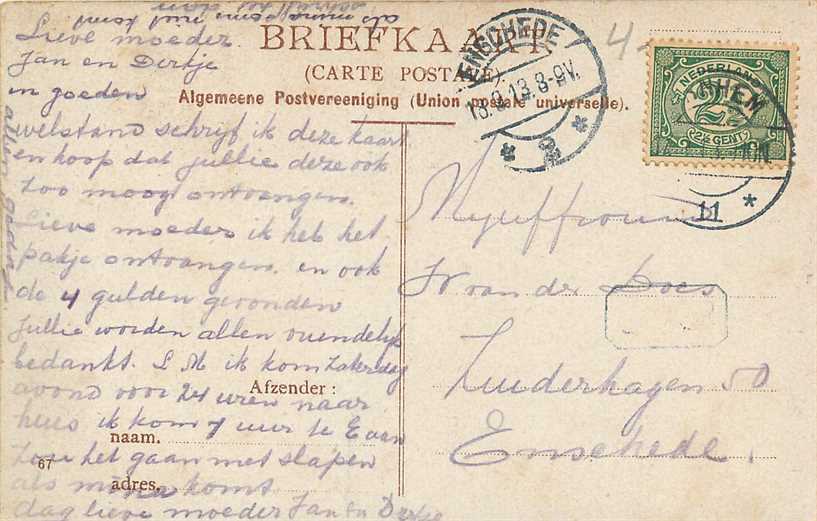 BRIEFKAART
(CARTE POSTALE)
Algemeene Postvereeniging (Union postale universelle).
Lieve moeder
Jan en Dirkje
in goeden
welstand schrijf ik deze kaart
en hoop dat jullie deze ook
zoo moog ontvangen.
Lieve moeder ik heb het
pakje ontvangen en ook
de 4 gulden gevonden
Jullie worden allen vriendelijk
bedankt. L M ik kom Zaterdag
avond voor 24 uren naar
huis ik kom 7 uur te E aan
het gaan met slapen
als komt
dag lieve moeder Jan en Dirkje
Afzender :
naam.
adres.
67
ENSCHEDE
18.9.13. 8-9V.
2
NEDERLAND
2½
2½ CENT
11
Mejuffrouw
van der Does
Zuiderhagen 50
Enschede.